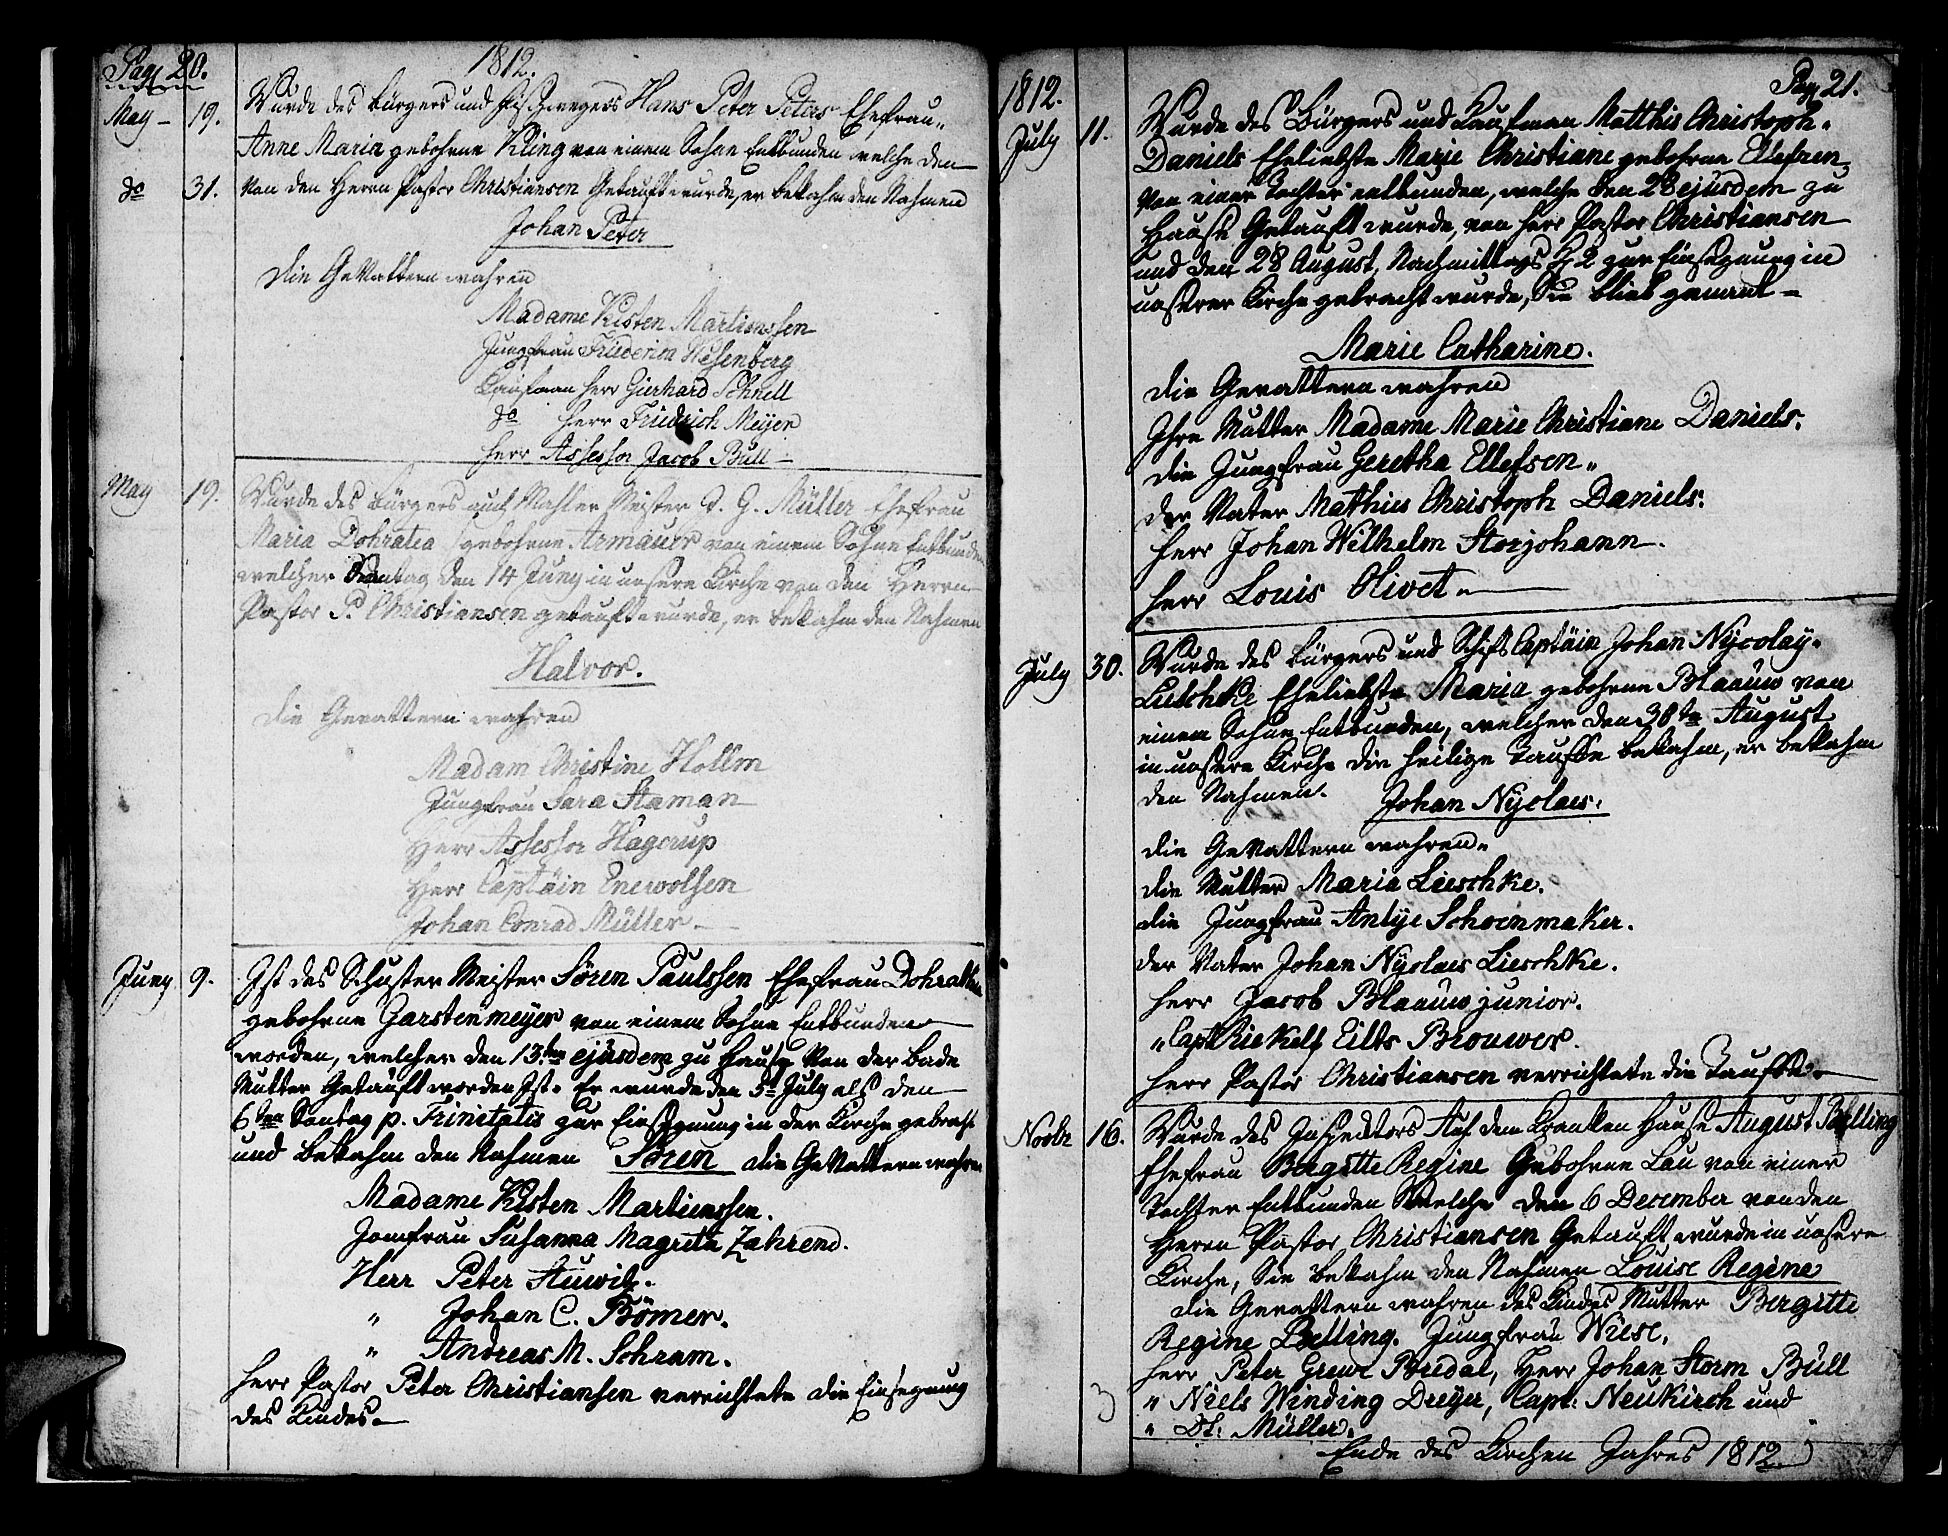 Pag 20.
1812.
May – 19. Wurde des Bürgers und Hans Peter Peters Ehefrau„
Anne Maria gebohrne Kling von einem Sohne Entbunden welche den
do 31. von den Herrn Pastor Christiansen Getauft wurde, er bekahm den Nahmen
Johan Peter
Die GeVattern wahren
Madame Kisten Martienssen
Jungfrau Friderica Wesenberg
Kaufman Herr Gierhard Schnell
do Herr Friedrich Meyer
Herr Assessor Jacob Bull –
May 19. Wurde des Bürgers und Mahler Meister D. G. Müller Ehefrau
Maria Dohratea gebohrne Armauer von einem Sohne Entbunden
welcher Sontag den 14 Juny in unsere Kirche von den Herrn
Pastor P. Christiansen getauft wurde, er bekahm den Nahmen
Halvor.
Die Gevattern wahren
Madam Christine Hollm
Jungfrau Sara Haman
Herr Assessor Hagerup
Herr Captäin Enewolsen
Johan Conrad Müller. –
Juny 9. Ist des Schuster Meister Sören Paulssen Ehefrau Dohrathea
gebohrne Garstenmeyer von einem Sohne Entbunden
worden, welcher den 13ten ejusdem zu Hause von der Bade
Mutter Getauft worden Ist. Er wurde den 5t July als den
6ten Sontag p. Trinitatis zur Einsegnung in der Kirche gebracht
und bekahm den Nahmen Sören die GeVattern wahren
Madame Kisten Martienssen.
Jomfrau Susanna Magreta Zahrend.
Herr Peter Stuwitz.
„ Johan C. Bömer.
„ Andreas M. Schram.
Herr Pastor Peter Christiansen verrichtete die Einsegnung
des Kindes. –
Pag 21.
1812.
July 11. Wurde des Bürgers und Kaufman Matthis Christoph„
Daniels Eheliebste Marie Christiane gebohrne Ellefsen
von einer Tochter entbunden, welche den 28 ejusdem zu
Hause Getauft wurde, von Herr Pastor Christiansen
und den 28 August, Nachmittags 2 zur Einsegnung in
unserer Kirche gebracht wurde, Sie blieb genant –
Marie Catharine.
Die Gevattern wahren
Ihre Mutter Madame Marie Christiane Daniels.
die Jungfrau Geretha Ellefsen„
der Vater Mathius Christoph Daniels.
Herr Johan Wilhelm Storjohann.
Herr Louis Olivet. –
July 30. Wurde des Bürgers und Schifs Captäin Johan Nycolay„
Lieschke Eheliebste Maria gebohrne Blaauw von
einem Sohne Entbunden, welcher den 30te August
in unsere Kirche die heilige Tauffe bekahm, er bekahm
den Nahmen. Johan Nyolaes.
die GeVattern wahren„
die Mutter Maria Lieschke.
die Jungfrau Antye Schoenmaker.
der Vater Johan Nyolaes Lieschke.
Herr Jacob Blaauw junior.
„ Capt Riekelf Eilts Brouwer.
Herr Pastor Christiansen verrichtete die Tauffe. –
Novbr 16. Wurde des Inspektors Auf dem Kranken Hause August Belling
Ehefrau Bergitte Regine Gebohrne Lau von einer
Tochter Entbunden Welche den 6 December von den
Herrn Pastor Christiansen Getauft wurde in unsere
Kirche, Sie bekahm den Nahmen Louise Regine
die Gevattern wahren des Kindes Mutter Bergitte
Regine Belling. Jungfrau Wiese.
Herr Peter Greve Bredal, Herr Johan Storm Bull
„ Niels Winding Dreyer, Capt: Neukirch und
„ Dt: Müller.
3
Ende des Kirchen Jahres 1812.